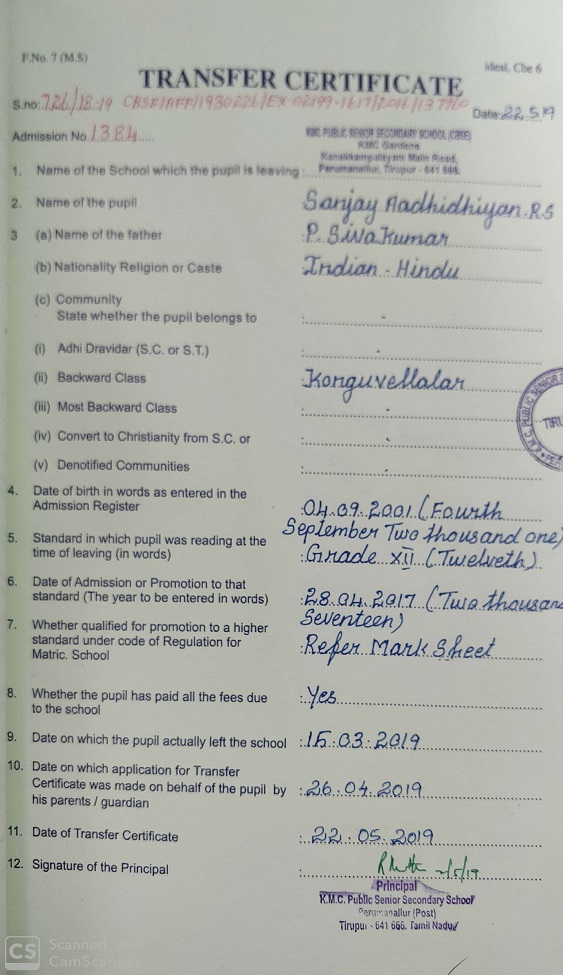 F.No. 7 (M.S)
ideal, Che 6
TRANSFER CERTIFICATE
S.no: 726/18-19 CBSE/AFF/1930226/EX-02199-1617/2016/
Date: 22.5.19
Admission No. 1384
KMC PUBLIC SENIOR SECONDARY SCHOOL (CBSE)
KMC Gardens
Main Road,
Perumanallur, Tirupur - 641 666.
1. Name of the School which the pupil is leaving :
2. Name of the pupil Sanjay Aadhidhiyan.R.S
3 (a) Name of the father : P. Sivakumar
(b) Nationality Religion or Caste : Indian - Hindu
(c) Community
State whether the pupil belongs to : -
(i) Adhi Dravidar (S.C. or S.T.) : -
(ii) Backward Class : Konguvellalar
(iii) Most Backward Class : -
(iv) Convert to Christianity from S.C. or : -
(v) Denotified Communities : -
K.M.C. PUBLIC SENIOR
TIRU
4. Date of birth in words as entered in the
Admission Register : 04.09.2001 (Fourth
September Two thousand one)
5. Standard in which pupil was reading at the
time of leaving (in words) : Grade XII (Twelveth)
6. Date of Admission or Promotion to that
standard (The year to be entered in words) : 28.04.2017 (Two thousan
Seventeen)
7. Whether qualified for promotion to a higher
standard under code of Regulation for : Refer Mark Sheet
Matric. School
8. Whether the pupil has paid all the fees due : Yes
to the school
9. Date on which the pupil actually left the school : 15.03.2019
10. Date on which application for Transfer
Certificate was made on behalf of the pupil by : 26.04.2019
his parents / guardian
11. Date of Transfer Certificate : 22.05.2019
12. Signature of the Principal :
Principal
K.M.C. Public Senior Secondary School
Perumanallur (Post)
Tirupur - 641 666. Tamil Nadu
CS Scanned with
CamScanner